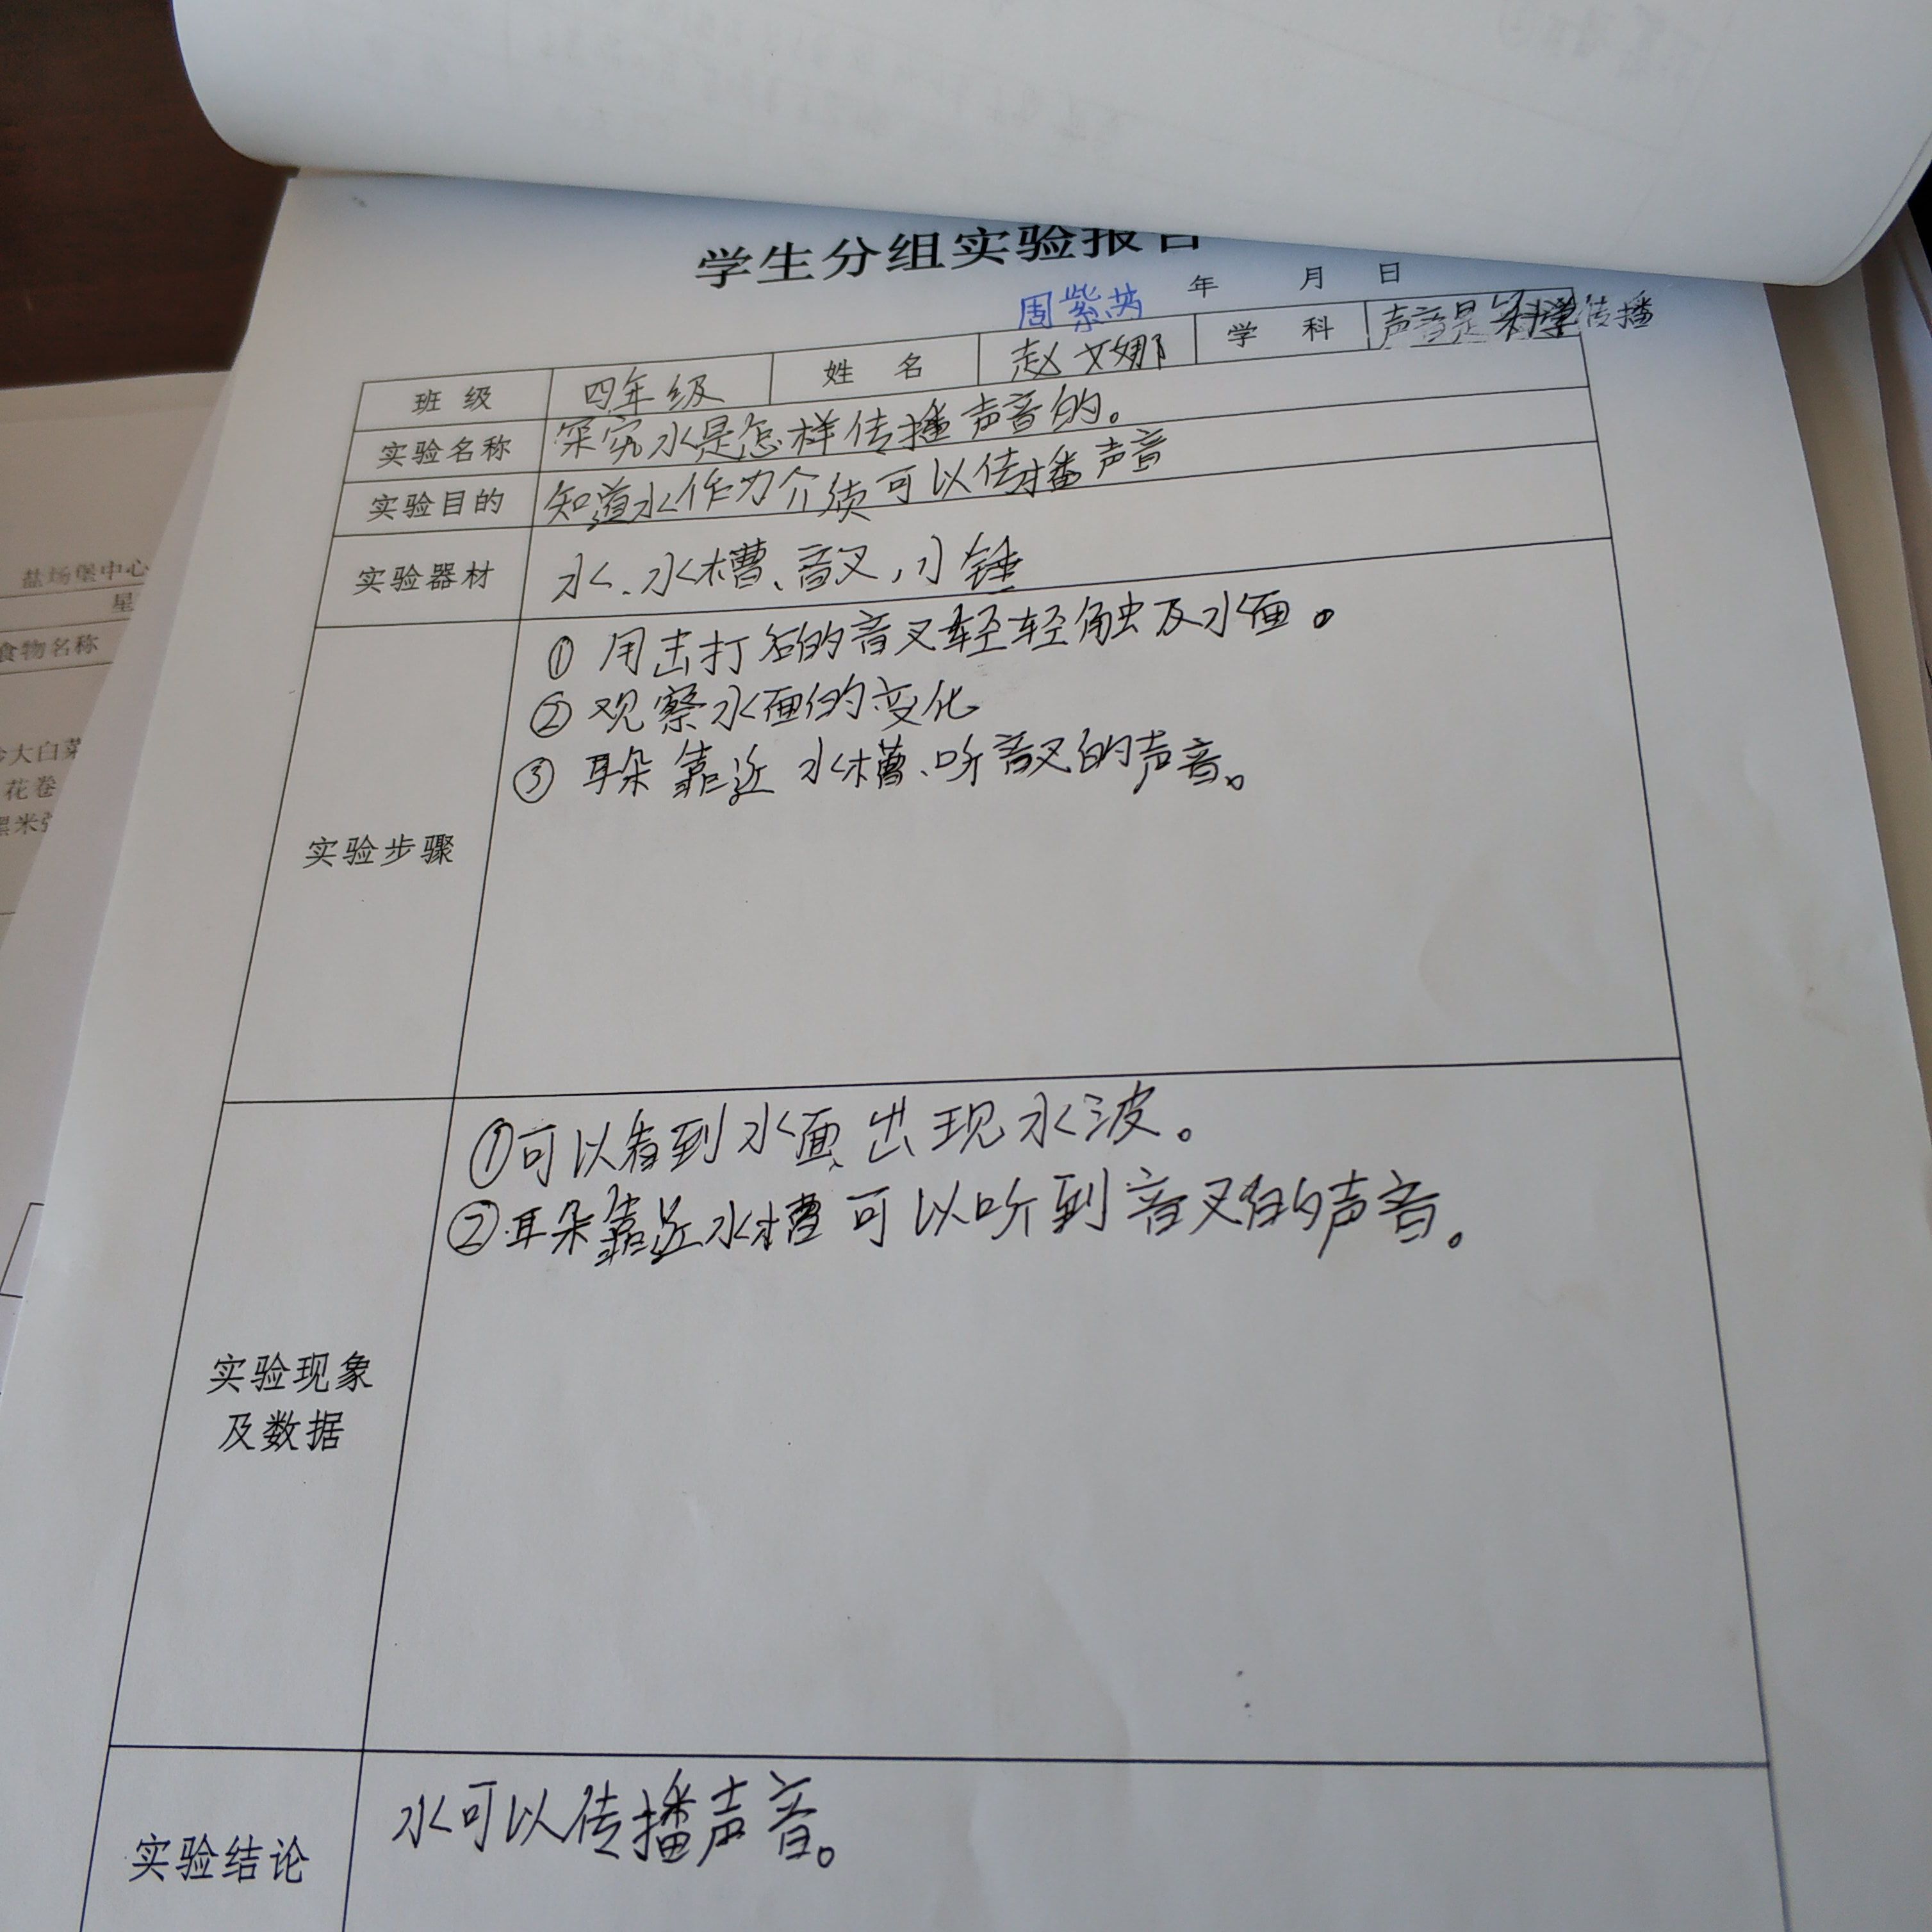 学生分组实验报告
周紫芮 年 月 日
班级 四年级 姓名 赵文娜 学科 声音是 科学 传播
实验名称 探究水是怎样传播声音的。
实验目的 知道水作为介质可以传播声音
实验器材 水、水槽、音叉,小锤
①用击打后的音叉轻轻触及水面。
②观察水面的变化
③耳朵靠近水槽、听音叉的声音。
实验步骤
①可以看到水面出现水波。
②耳朵靠近水槽可以听到音叉的声音。
实验现象
及数据
水可以传播声音。
实验结论
盐场堡中心
星
食物名称
大白菜
花卷
黑米